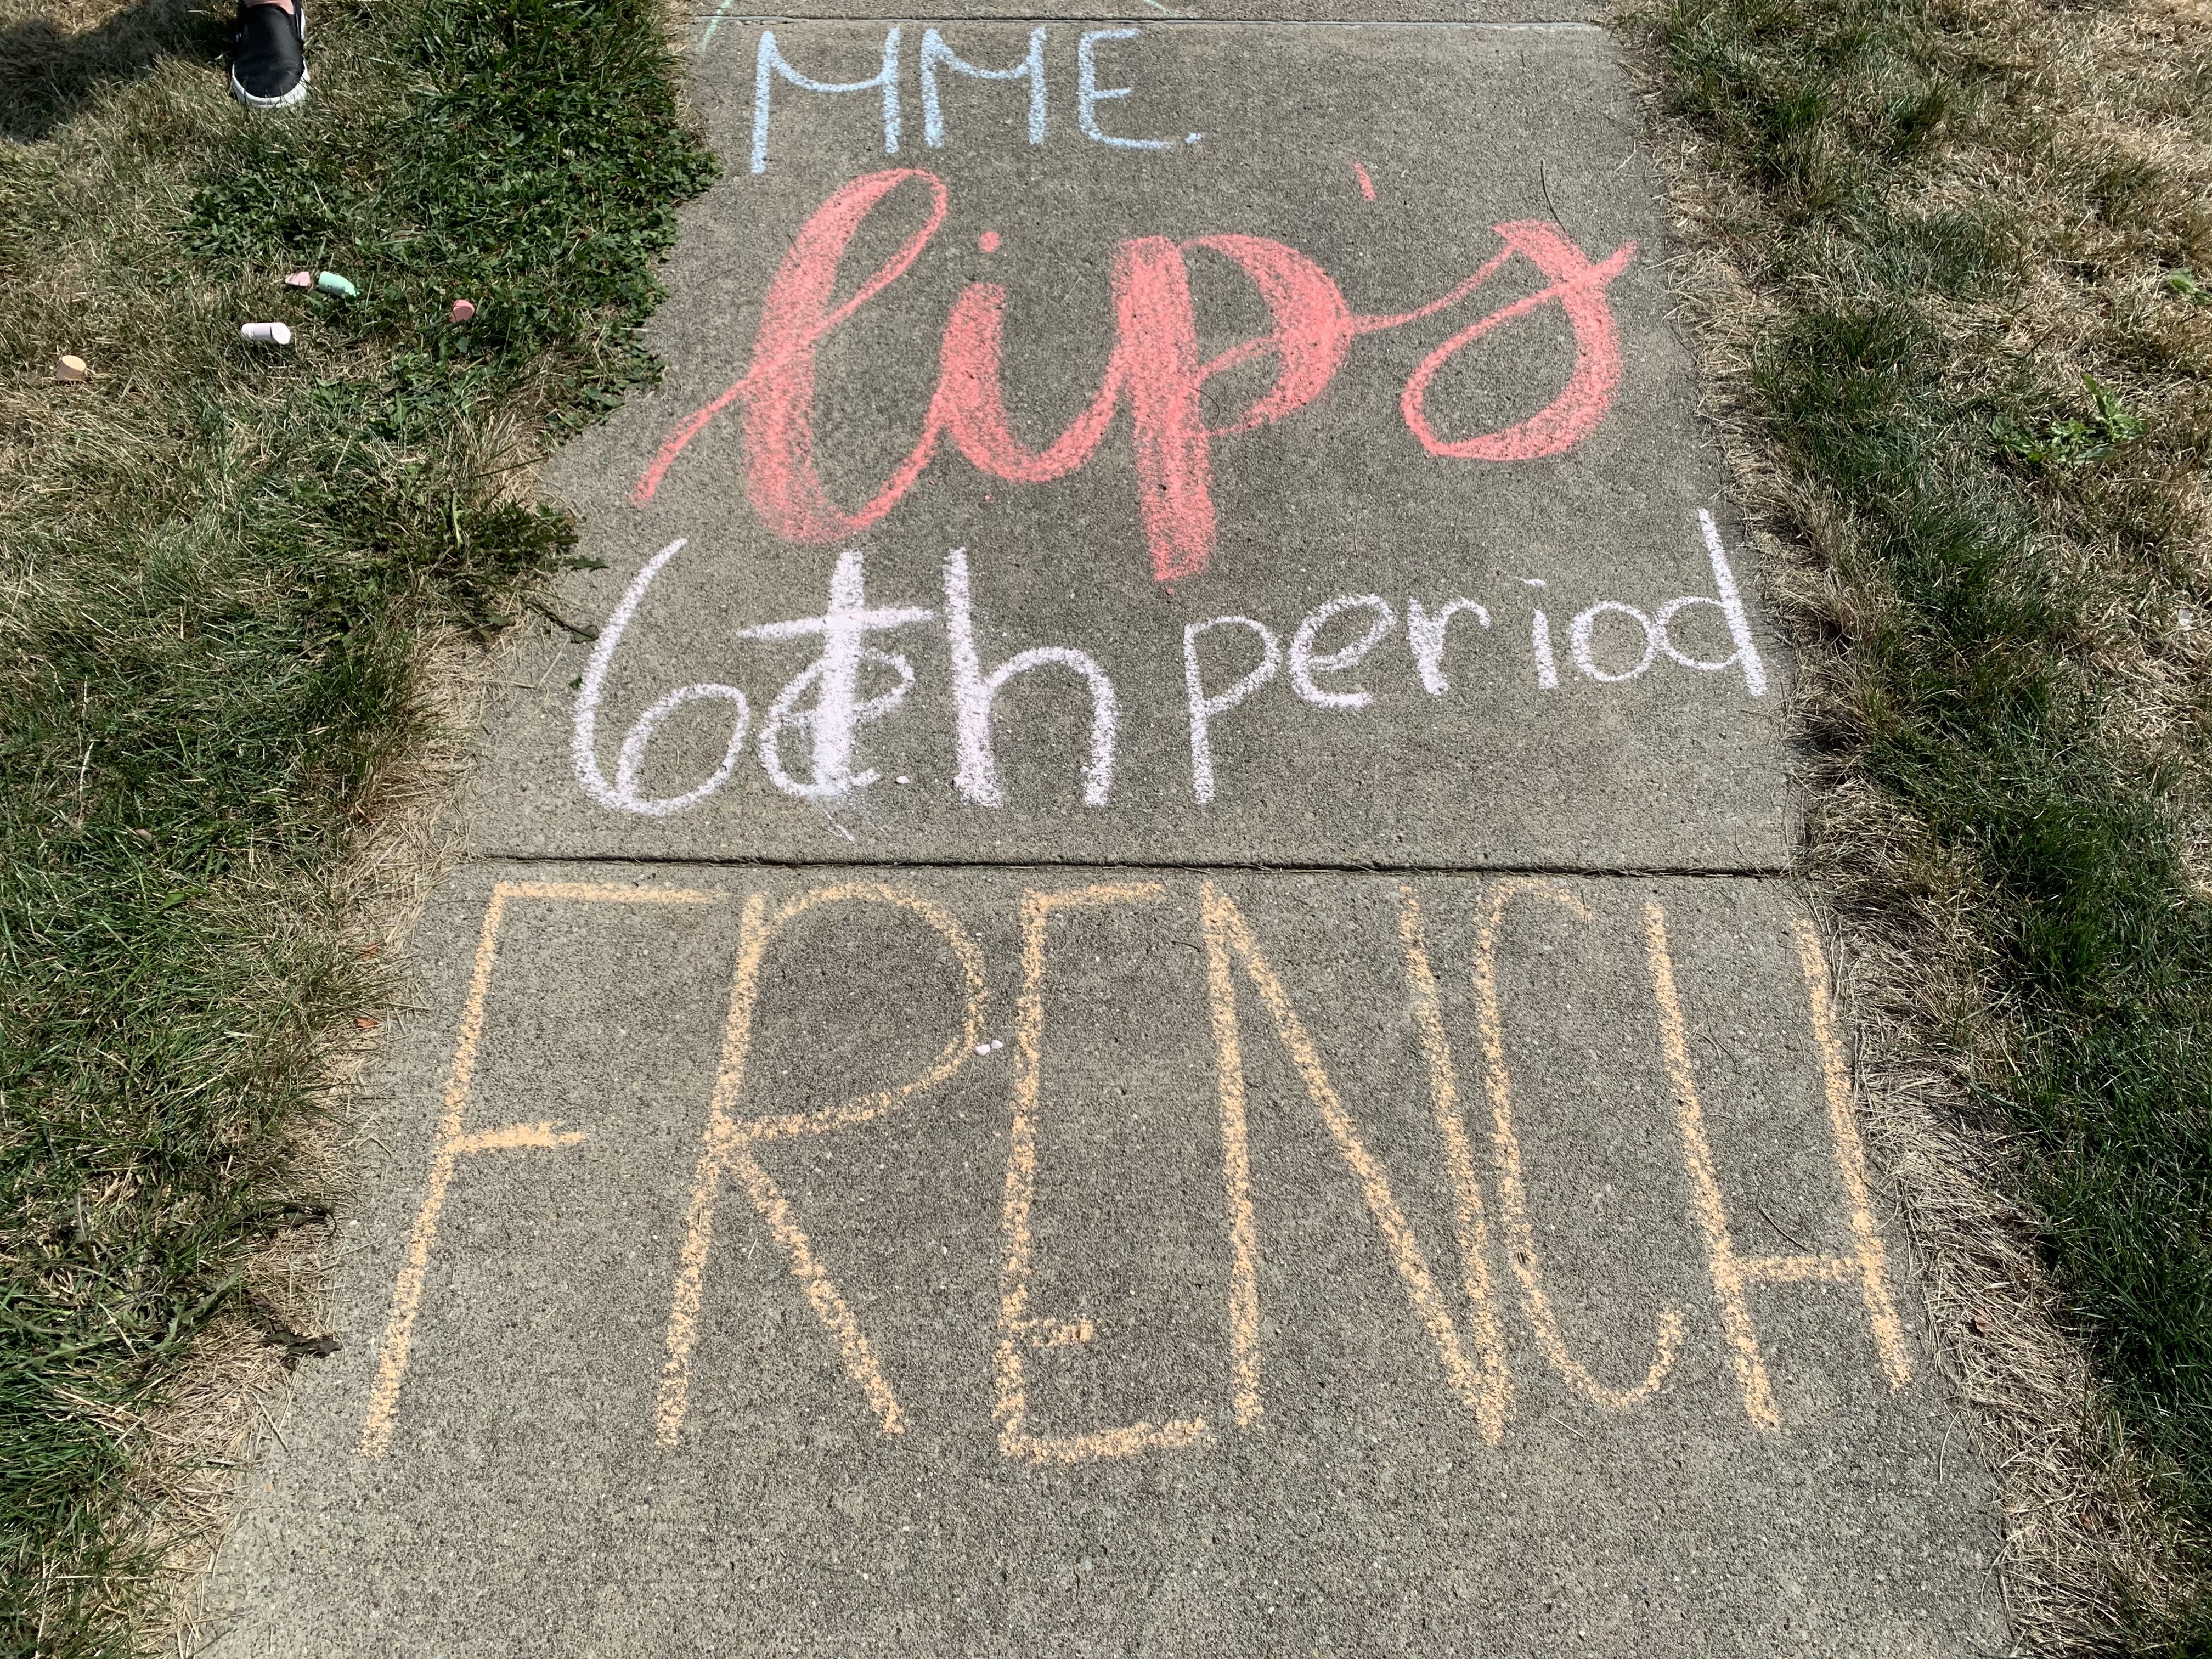 MME.
lip's
6th period
FRENCH